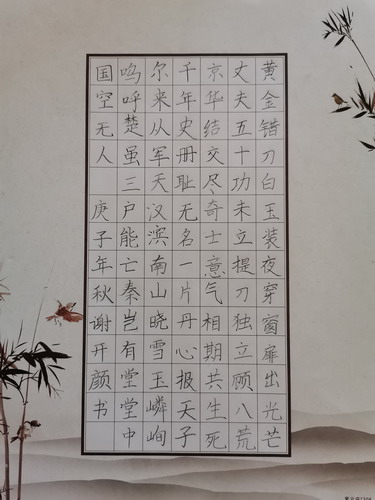 黄金错刀白玉装夜穿窗扉出光芒
丈夫五十功未立提刀独立顾八荒
京华结交尽奇士意气相期共生死
千年史册耻无名一片丹心报天子
尔来从军天汉滨南山晓雪玉嶙峋
呜呼楚虽三户能亡秦岂有堂堂中
国空无人 庚子年秋谢开颜书